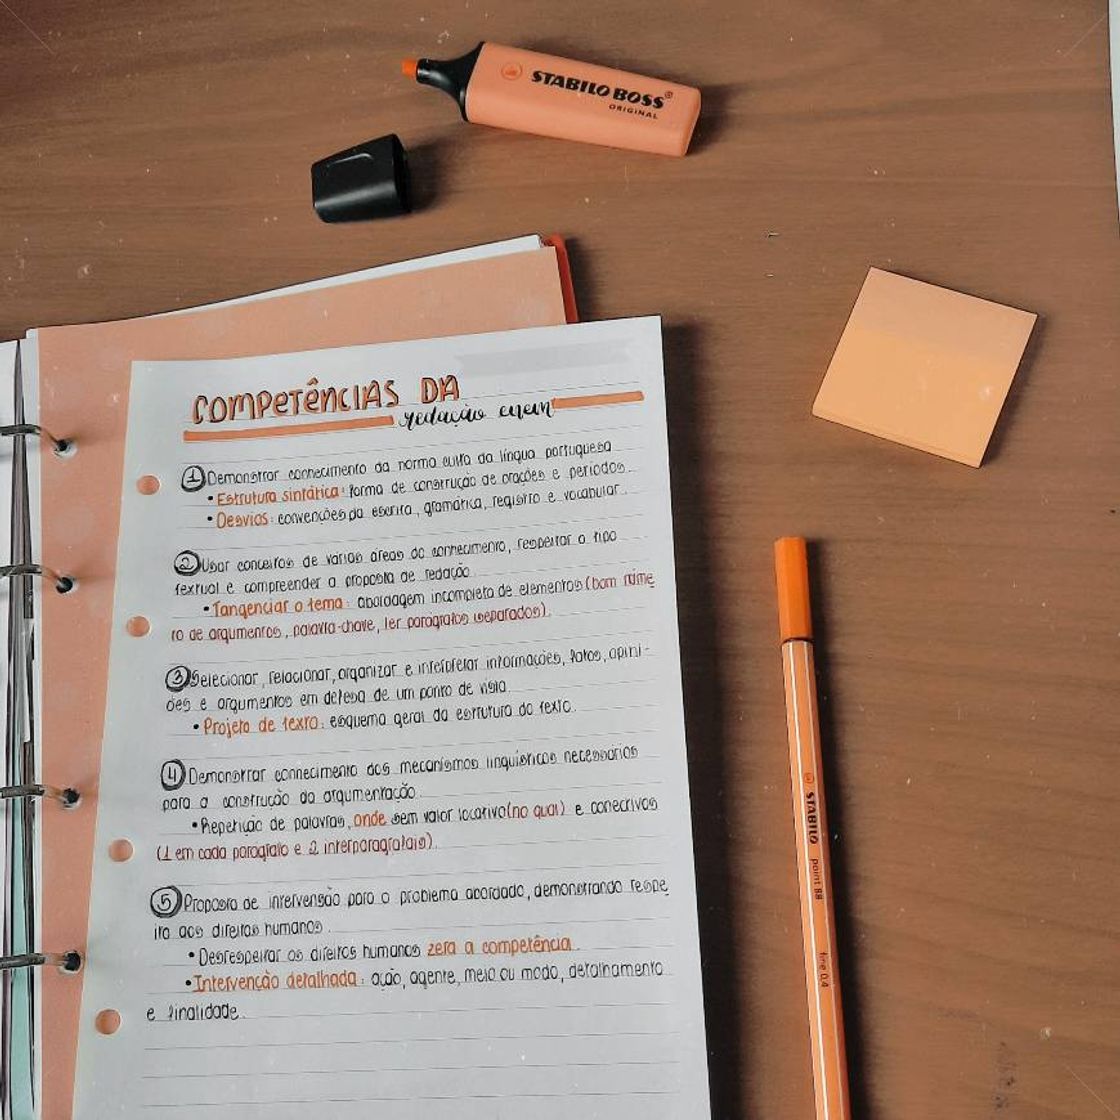 STABILO BOSS®
ORIGINAL
COMPETÊNCIAS DA
redação enem
1 Demonstrar conhecimento da norma culta da língua portuguesa
• Estrutura sintática: forma de construção de orações e períodos.
• Desvios: convenções da escrita, gramática, registro e vocabular.
2 Usar conceitos de várias áreas do conhecimento, respeitar o tipo
textual e compreender a proposta de redação
• Tangenciar o tema: abordagem incompleta de elementos (bom núme
ro de argumentos, palavra-chave, ter parágrafos separados).
3 Selecionar, relacionar, organizar e interpretar informações, fatos, opini-
ões e argumentos em defesa de um ponto de vista
• Projeto de texto: esquema geral da estrutura do texto.
4 Demonstrar conhecimento dos mecanismos linguísticos necessários
para a construção da argumentação.
• Repetição de palavras, onde sem valor locativo (no qual) e conectivos
(1 em cada parágrafo e 2 interparagrafais).
5 Proposta de intervenção para o problema abordado, demonstrando respe
ito aos direitos humanos.
• Desrespeitar os direitos humanos zera a competência.
• Intervenção detalhada: ação, agente, meio ou modo, detalhamento
e finalidade.
STABILO point 88 fine 0.4